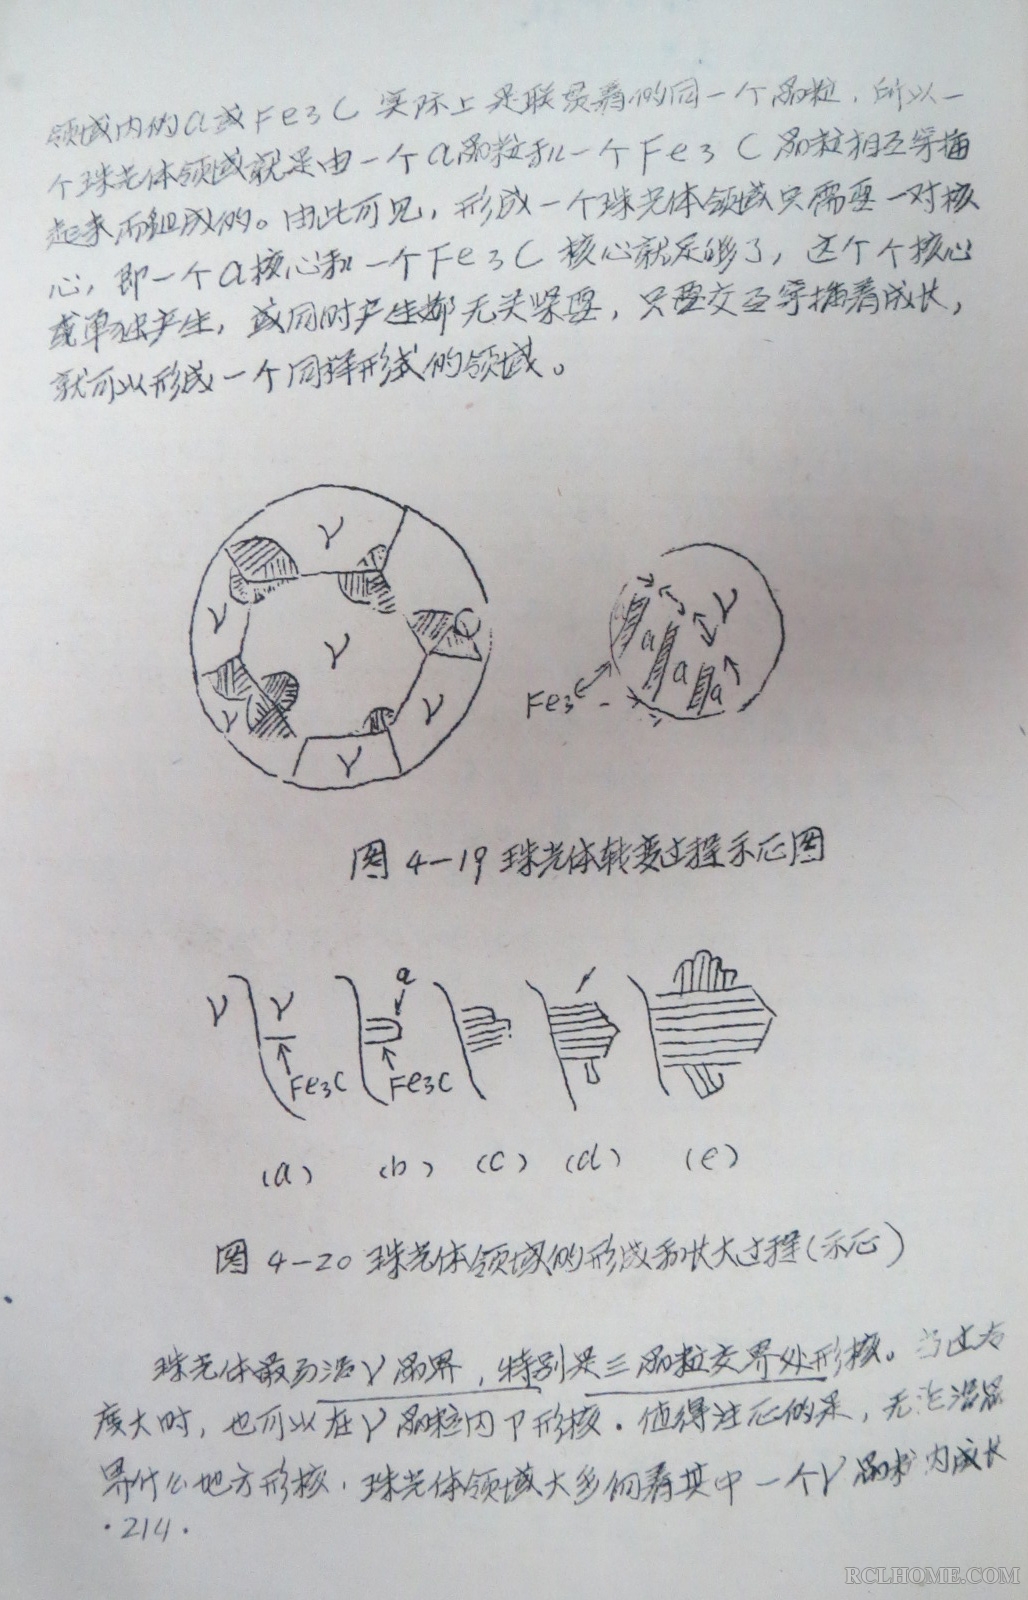 领域内的α或Fe3C实际上是联贯着的同一个晶粒，所以一
个珠光体领域就是由一个α晶粒和一个Fe3C晶粒相互穿插
起来而组成的。由此可见，形成一个珠光体领域只需要一对核
心，即一个α核心和一个Fe3C核心就足够了，这个个核心
或单独产生，或同时产生都无关紧要，只要交互穿插着成长，
就可以形成一个同样形式的领域。
γ
γ
γ
γ
γ
γ
γ
α
α
α
Fe3C
图4-19 珠光体转变过程示意图
γ
γ
α
Fe3C
Fe3C
(a) (b) (c) (d) (e)
图4-20 珠光体领域的形成和长大过程(示意)
珠光体最易沿γ晶界，特别是三晶粒交界处形核。当过冷
度大时，也可以在γ晶粒内部形核。值得注意的是，无论沿晶
界什么地方形核，珠光体领域大多向着其中一个γ晶粒内成长
·214·
RCLHOME.COM